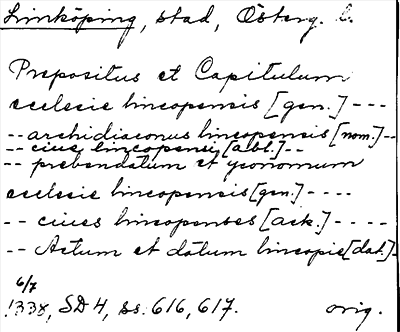 Linköping, stad, Österg. l.
Prepositus et Capitulum
ecclesie lincopensis [gen.] ---
-- archidiaconus lincopensis [nom.] --
-- ciuis lincopensi [abl.] --
-- prebendatum et yconomum
ecclesie lincopensis [gen.] ----
-- ciues lincopenses [ack.] -----
-- Actum et datum lincopie [dat.] -
6/7
1338, SD 4, ss. 616, 617. orig.